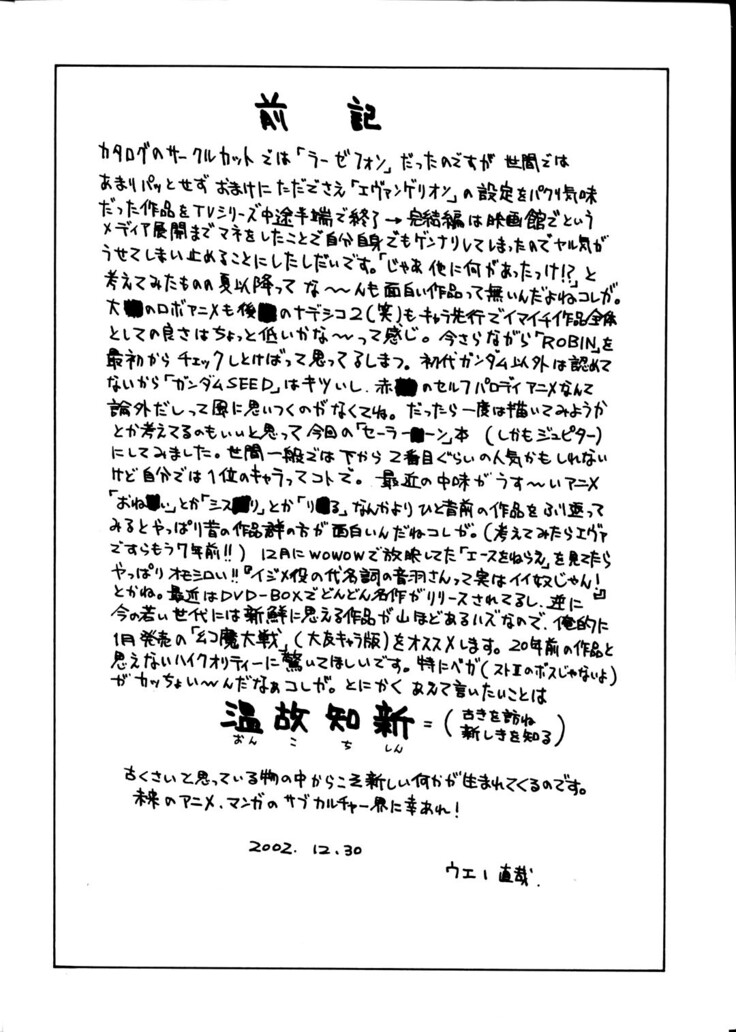 前記
カタログのサークルカットでは「ラーゼフォン」だったのですが世間では
あまりパッとせずおまけにただでさえ「エヴァンゲリオン」の設定をパクリ気味
だった作品をTVシリーズ中途半端で終了→完結編は映画館でという
メディア展開までマネをしたことで自分自身でもゲンナリしてしまったのでヤル気が
うせてしまい止めることにしたしだいです。「じゃあ他に何があったっけ!?」と
考えてみたものの夏以降って な〜〜んも面白い作品って無いんだよねコレが。
大のロボアニメも後のナデシコ2(笑)もキャラ先行でイマイチ作品全体
としての良さはちょっと低いかな〜〜って感じ。今さらながら「ROBIN」を
最初からチェックしとけばって思ってるしまつ。初代ガンダム以外は認めて
ないから「ガンダムSEED」はキツいし、赤のセルフパロディアニメなんて
論外だしって風に思いつくのがなくてね。だったら一度は描いてみようか
とか考えてるのもいいと思って今回の「セーラーーン」本 (しかもジュピター)
にしてみました。世間一般では下から2番目ぐらいの人気かもしれない
けど自分では1位のキャラってコトで。最近の中味がうす〜いアニメ
「おねい」とか「シスリ」とか「りる」なんかよりひと昔前の作品をふり返って
みるとやっぱり昔の作品群の方が面白いんだねコレが。(考えてみたらエヴァ
ですらもう7年前!!) 12月にWOWOWで放映してた「エースをねらえ」を見てたら
やっぱりオモシロい!!『イジメ役の代名詞の音羽さんって実はイイ奴じゃん!』
とかね。最近はDVD-BOXでどんどん名作がリリースされてるし、逆に
今の若い世代には新鮮に思える作品が山ほどあるハズなので、俺的に
1月発売の「幻魔大戦」(大友キャラ版)をオススメします。20年前の作品と
思えないハイクオリティーに驚いてほしいです。特にベガ(ストIIのボスじゃないよ)
がカッちょい〜んだなぁコレが。とにかくあえて言いたいことは
温故知新=(古きを訪ね
新しきを知る)
おんこちしん
古くさいと思っている物の中からこそ新しい何かが生まれてくるのです。
未来のアニメ、マンガのサブカルチャー界に幸あれ!
2002.12.30
ウエー直哉.